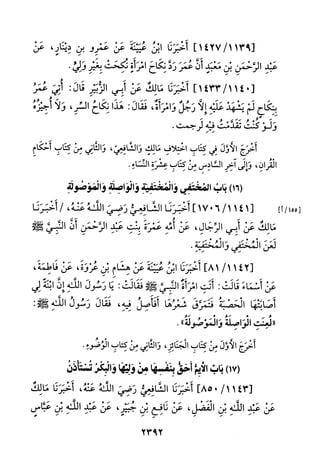 [١٤٢٧/١١٣٩] أَخْبَرَنَا ابْنُ عُيَيْنَةَ عَنْ عَمْرِو بنِ دِينَارٍ، عَنْ
عَبْدِ الرَّحْمَنِ بْنِ مَعْبَدٍ أَنَّ عُمَرَ رَدَّ نِكَاحَ امْرَأَةٍ نُكِحَتْ بِغَيْرِ وَلِيٍّ.
[١٤٣٣/١١٤٠] أَخْبَرَنَا مَالِكٌ عَنْ أَبِي الزُّبَيْرِ قَالَ: أُتِيَ عُمَرُ
بِنِكَاحٍ لَمْ يَشْهَدْ عَلَيْهِ إِلاَّ رَجُلٌ وَامْرَأَةٌ، فَقَالَ: هَذَا نِكَاحُ السِّرِّ، وَلاَ أُجِيزُهُ
وَلَـوْ كُنْتُ تَقَدَّمْتُ فِيْهِ لَرجمت.
أَخْرَجَ الأوَّلَ فِي كِتَابِ اخْتِلاَفِ مَالِكٍ وَالشَّافِعِيِّ، وَالثَّانِي مِنْ كِتَابِ أَحْكَامِ
القُرآنِ، وَإِلَى آخِرِ السَّادِسِ مِنْ كِتَابِ عِشْرَةِ النِّسَاءِ.
(١٦) بَابُ الْمُخْتَفِي وَالْمُخْتَفِيَةِ وَالْوَاصِلَةِ وَالْمَوْصُولَةِ
[١٧٠٦/١١٤١] أَخْبَرَنَـا الشَّـافِعِيُّ رَضِيَ اللَّـهُ عَنْهُ، / أَخْبَرَنَـا [١٥٥/أ]
مَالِكٌ عَنْ أَبِـي الرِّجَالِ، عَنْ أُمِّهِ عَمْرَةَ بِنْتِ عَبْدِ الرَّحْمَنِ أَنَّ النَّبِـيَّ ﷺ
لَعَنَ الْمُخْتَفِي وَالْمُخْتَفِيَةِ.
[٨١/١١٤٢] أَخْبَرَنَا ابْنُ عُيَيْنَةَ عَنْ هِشَامِ بْنِ عُرْوَةَ، عَنْ فَاطِمَةَ،
عَنْ أَسْمَاءَ قَالَتْ: أَتَتِ امْرَأَةٌ النَّبِيَّ ﷺ فَقَالَتْ: يَا رَسُولَ اللَّهِ إِنَّ ابْنَةً لِي
أَصَابَتْهَا الْحَصْبَةُ فَتَمَرَّقَ شَعْرُهَا أَفَأَصِلُ فِيهِ، فَقَالَ رَسُولُ اللَّهِ ﷺ:
«لُعِنَتِ الْوَاصِلَةُ وَالْمَوْصُولَةُ».
أَخْرَجَ الأَوَّلَ مِنْ كِتَابِ الْجَنَائِزِ، وَالثَّانِي مِنْ كِتابِ الوُضُوءِ.
(١٧) بَابُ الأَيِّمُ أَحَقُّ بِنَفْسِهَا مِنْ وَلِيِّهَا وَالْبِكْرُ تُسْتَأْذَنُ
[٨٥٠/١١٤٣] أَخْبَرَنَا الشَّافِعِيُّ رَضِيَ اللَّهُ عَنْهُ، أَخْبَرَنَا مَالِكٌ
عَنْ عَبْدِ اللَّهِ بْنِ الْفَضْلِ، عَنْ نَافِعِ بْنِ جُبَيْرٍ، عَنْ عَبْدِ اللَّهِ بْنِ عَبَّاسٍ
٢٣٩٢